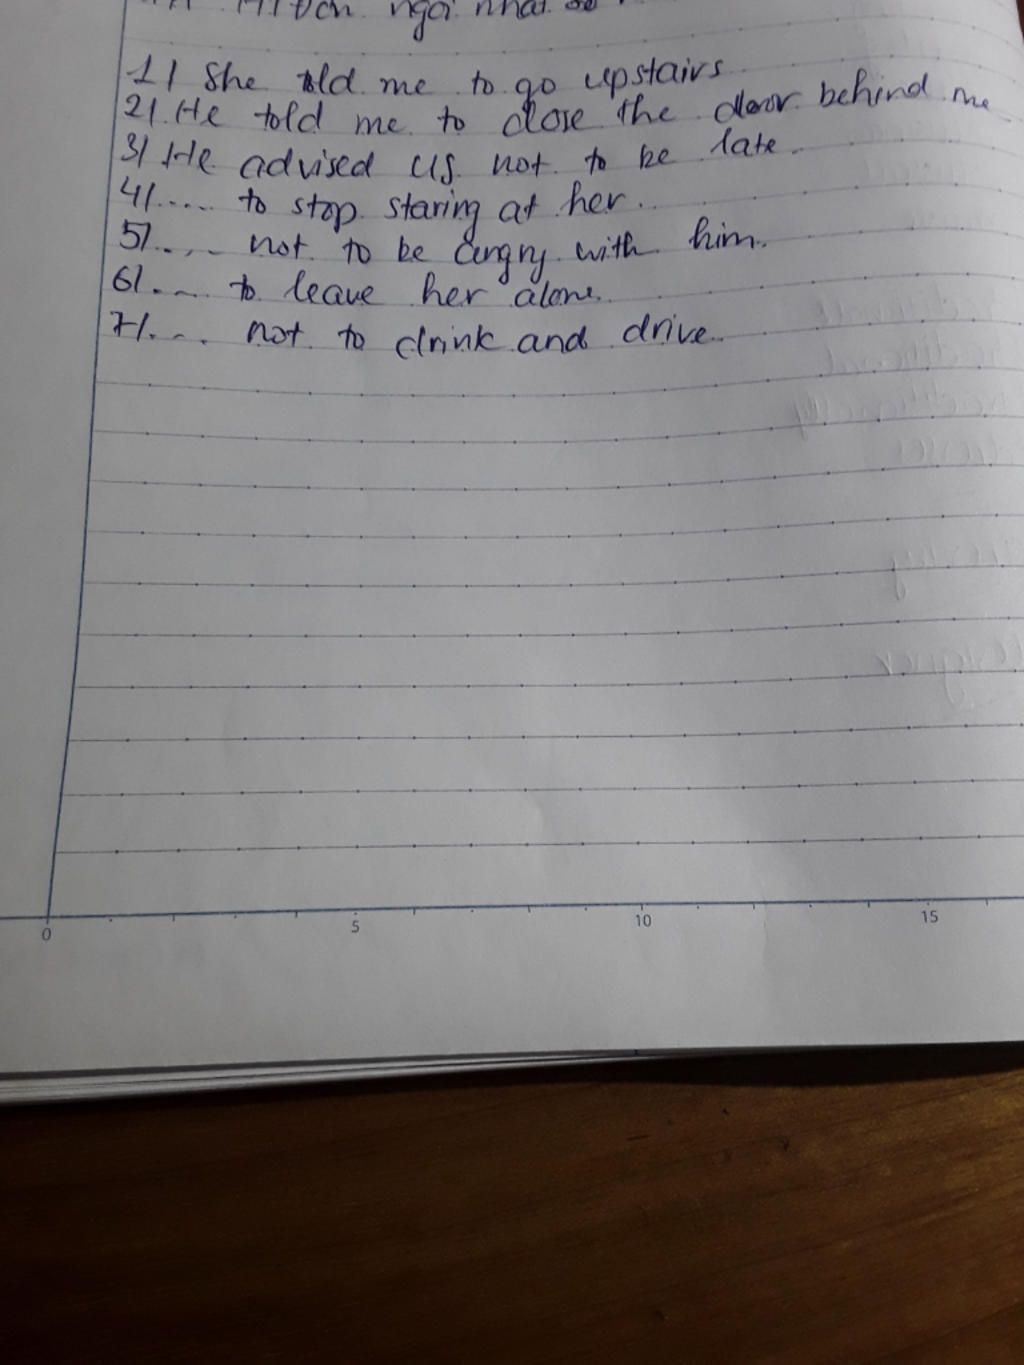 ngôi nhà số
1/ She told me to go upstairs
2/. He told me to close the door behind me
3/ He advised us not to be late.
4/.... to stop staring at her.
5/.... not to be angry with him.
6/... to leave her alone.
7/.... not to drink and drive.
0 5 10 15